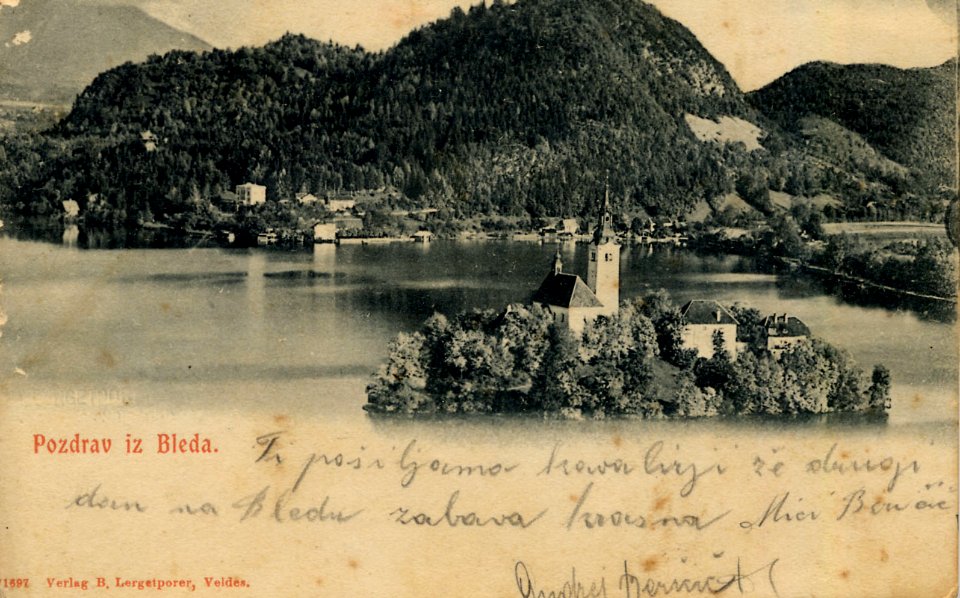 Pozdrav iz Bleda.
Ti pošiljamo kavalirji že drugi
dan na Bledu zabava krasna Mici
Andrej
1697 Verlag B. Lergetporer, Veldes.